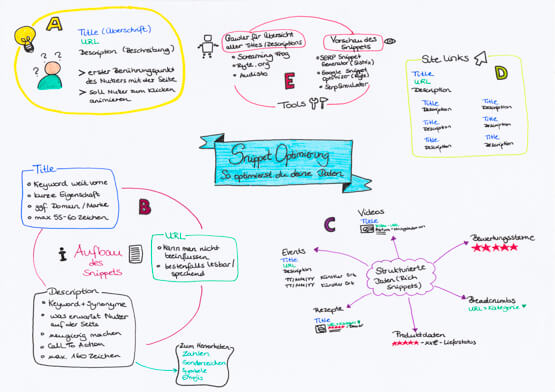 A
Title (Überschrift)
URL
Description (Beschreibung)
> erster Berührungspunkt
des Nutzers mit der Seite
> soll Nutzer zum Klicken
animieren
? ? ?
Crawler für Übersicht
aller Titles/Descriptions
• Screaming Frog
• Ryte.org
• Audisto
Vorschau des
Snippets
• SERP Snippet
Generator (Sistrix)
• Google Snippet
Optimizer (Ryte)
• SerpSimulator
E
Tools
Site Links
D
Title
URL
Description
Title
Description
Title
Description
Title
Description
Title
Description
Title
Description
Title
Description
Snippet Optimierung
So optimierst du deine Daten
Title
• Keyword weit vorne
• kurze Eigenschaft
• ggf. Domain/Marke
• max 55-60 Zeichen
B
i Aufbau
des
Snippets
URL
• Kann man nicht
beeinflussen
• bestenfalls lesbar/
sprechend
Description
• Keyword + Synonyme
• was erwartet Nutzer
auf der Seite
• neugierig machen
• Call To Action
• max. 160 Zeichen
Zum Hervorheben
Zahlen
Sonderzeichen
Symbole
Emojis
C
Videos
Title
Events
Title
URL
Description
TT/MM/YY Künstler Ort
TT/MM/YY Künstler Ort
Strukturierte
Daten (Rich
Snippets)
Bewertungssterne
★★★★★
Breadcrumbs
URL > Kategorie
Produktdaten
★★★★★ - xx€ - Lieferstatus
Rezepte
Title